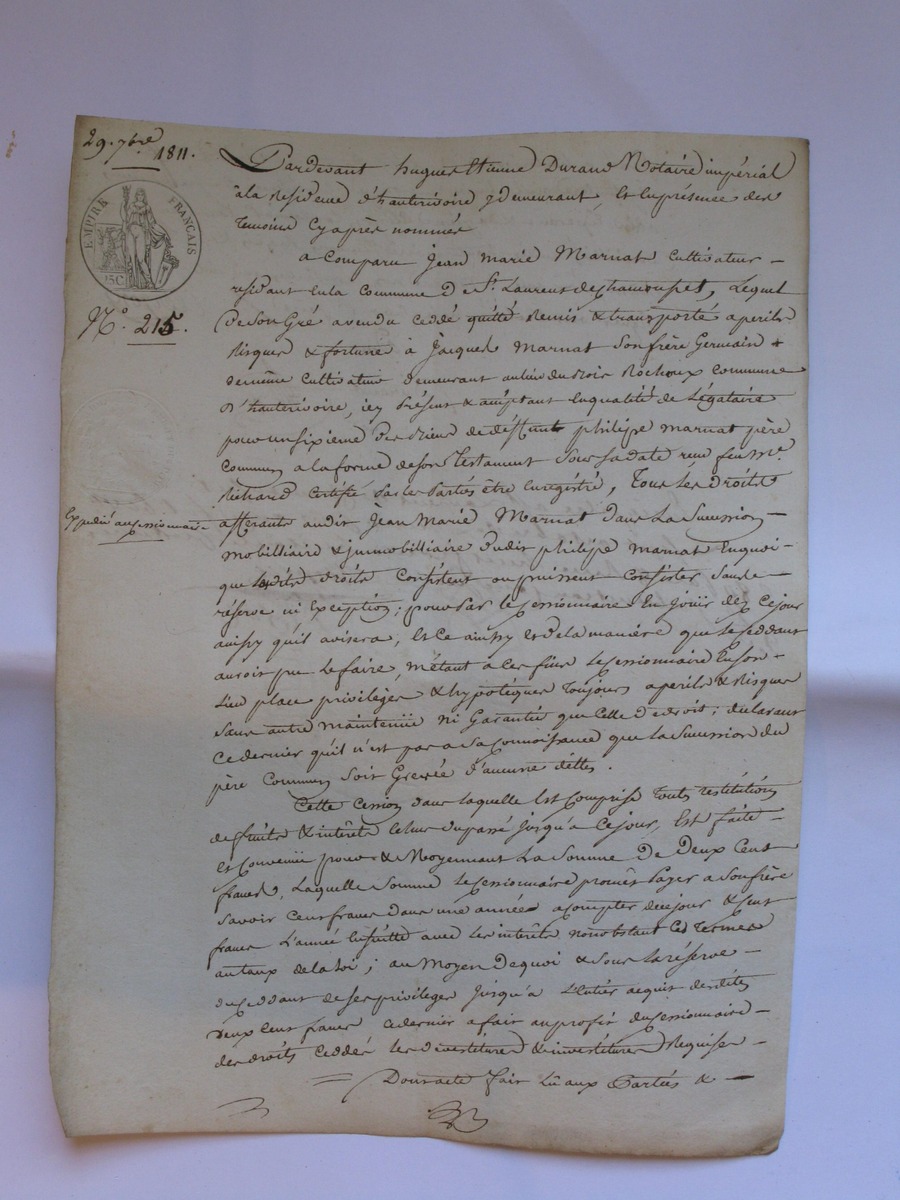 29. 7bre 1811.
EMPIRE FRANÇAIS
75C
N.° 215.
Expédié au cessionnaire
Pardevant hugues Etienne Durand Notaire impérial
à la residence d'hauterivoire y demeurant, et en présence des
temoins cy après nommés
a Comparu Jean Marie Marnat Cultivateur
residant en la Commune de St. Laurent de chamousset, Lequel
de son Gré a vendu ceddé quitté remis & transporté a perils
risques & fortune à Jacques Marnat son frère Germain &
demême Cultivateur demeurant au lieu du Bois Rochoux commune
d'hauterivoire, icy présent & aceptant en qualité de Légataire
pour un sixieme des Biens de deffunt philipe Marnat père
Commun a la forme de son Testament sous sa date reçu feu Me
Richard Certifié par les parties être Enregistré, Tous les droits
afferants audit Jean Marie Marnat dans La Succession
mobilliaire & immobilliaire dudit philipe Marnat En quoi
que lesdits droits Consistent ou puissent Consister sans
réserve ni Exception; pour par le cessionnaire En jouir dez ce jour
ainsy qu'il avisera, et ce ainsy et de la manière que le ceddant
auroit pu le faire, métant a ces fins le cessionnaire En son
Lieu place privilèges & hypotéques Toujours a perils & Risques
sans autre maintenüe ni Garantie que celle de droit; declarant
ce dernier qu'il n'est pas a sa Connoissance que la Succession du
père Commun soit Grevée d'aucune dettes.
Cette Cession dans laquelle Est Comprise Touts restitutions
de fruits & intérêts Echus du passé jusqu'a ce jour, Est faite
et Convenüe pour & Moyennant La Somme De Deux Cent
francs, Laquelle Somme le cessionnaire promet payer a son frère
Savoir Cent francs dans une année a compter de ce jour & Cent
francs L'année Ensuitte avec les intérêts nonobstant Ces Termes
au taux de la Loi; au Moyen De quoi & sous la réserve
du ceddant de ses privileges jusqu'à L'entier acquit desdits
Deux Cent francs ce dernier a fait au profit du cessionnaire
des droits ceddés les devestitures & investitures Requises
Dont acte fait Lû aux Parties &